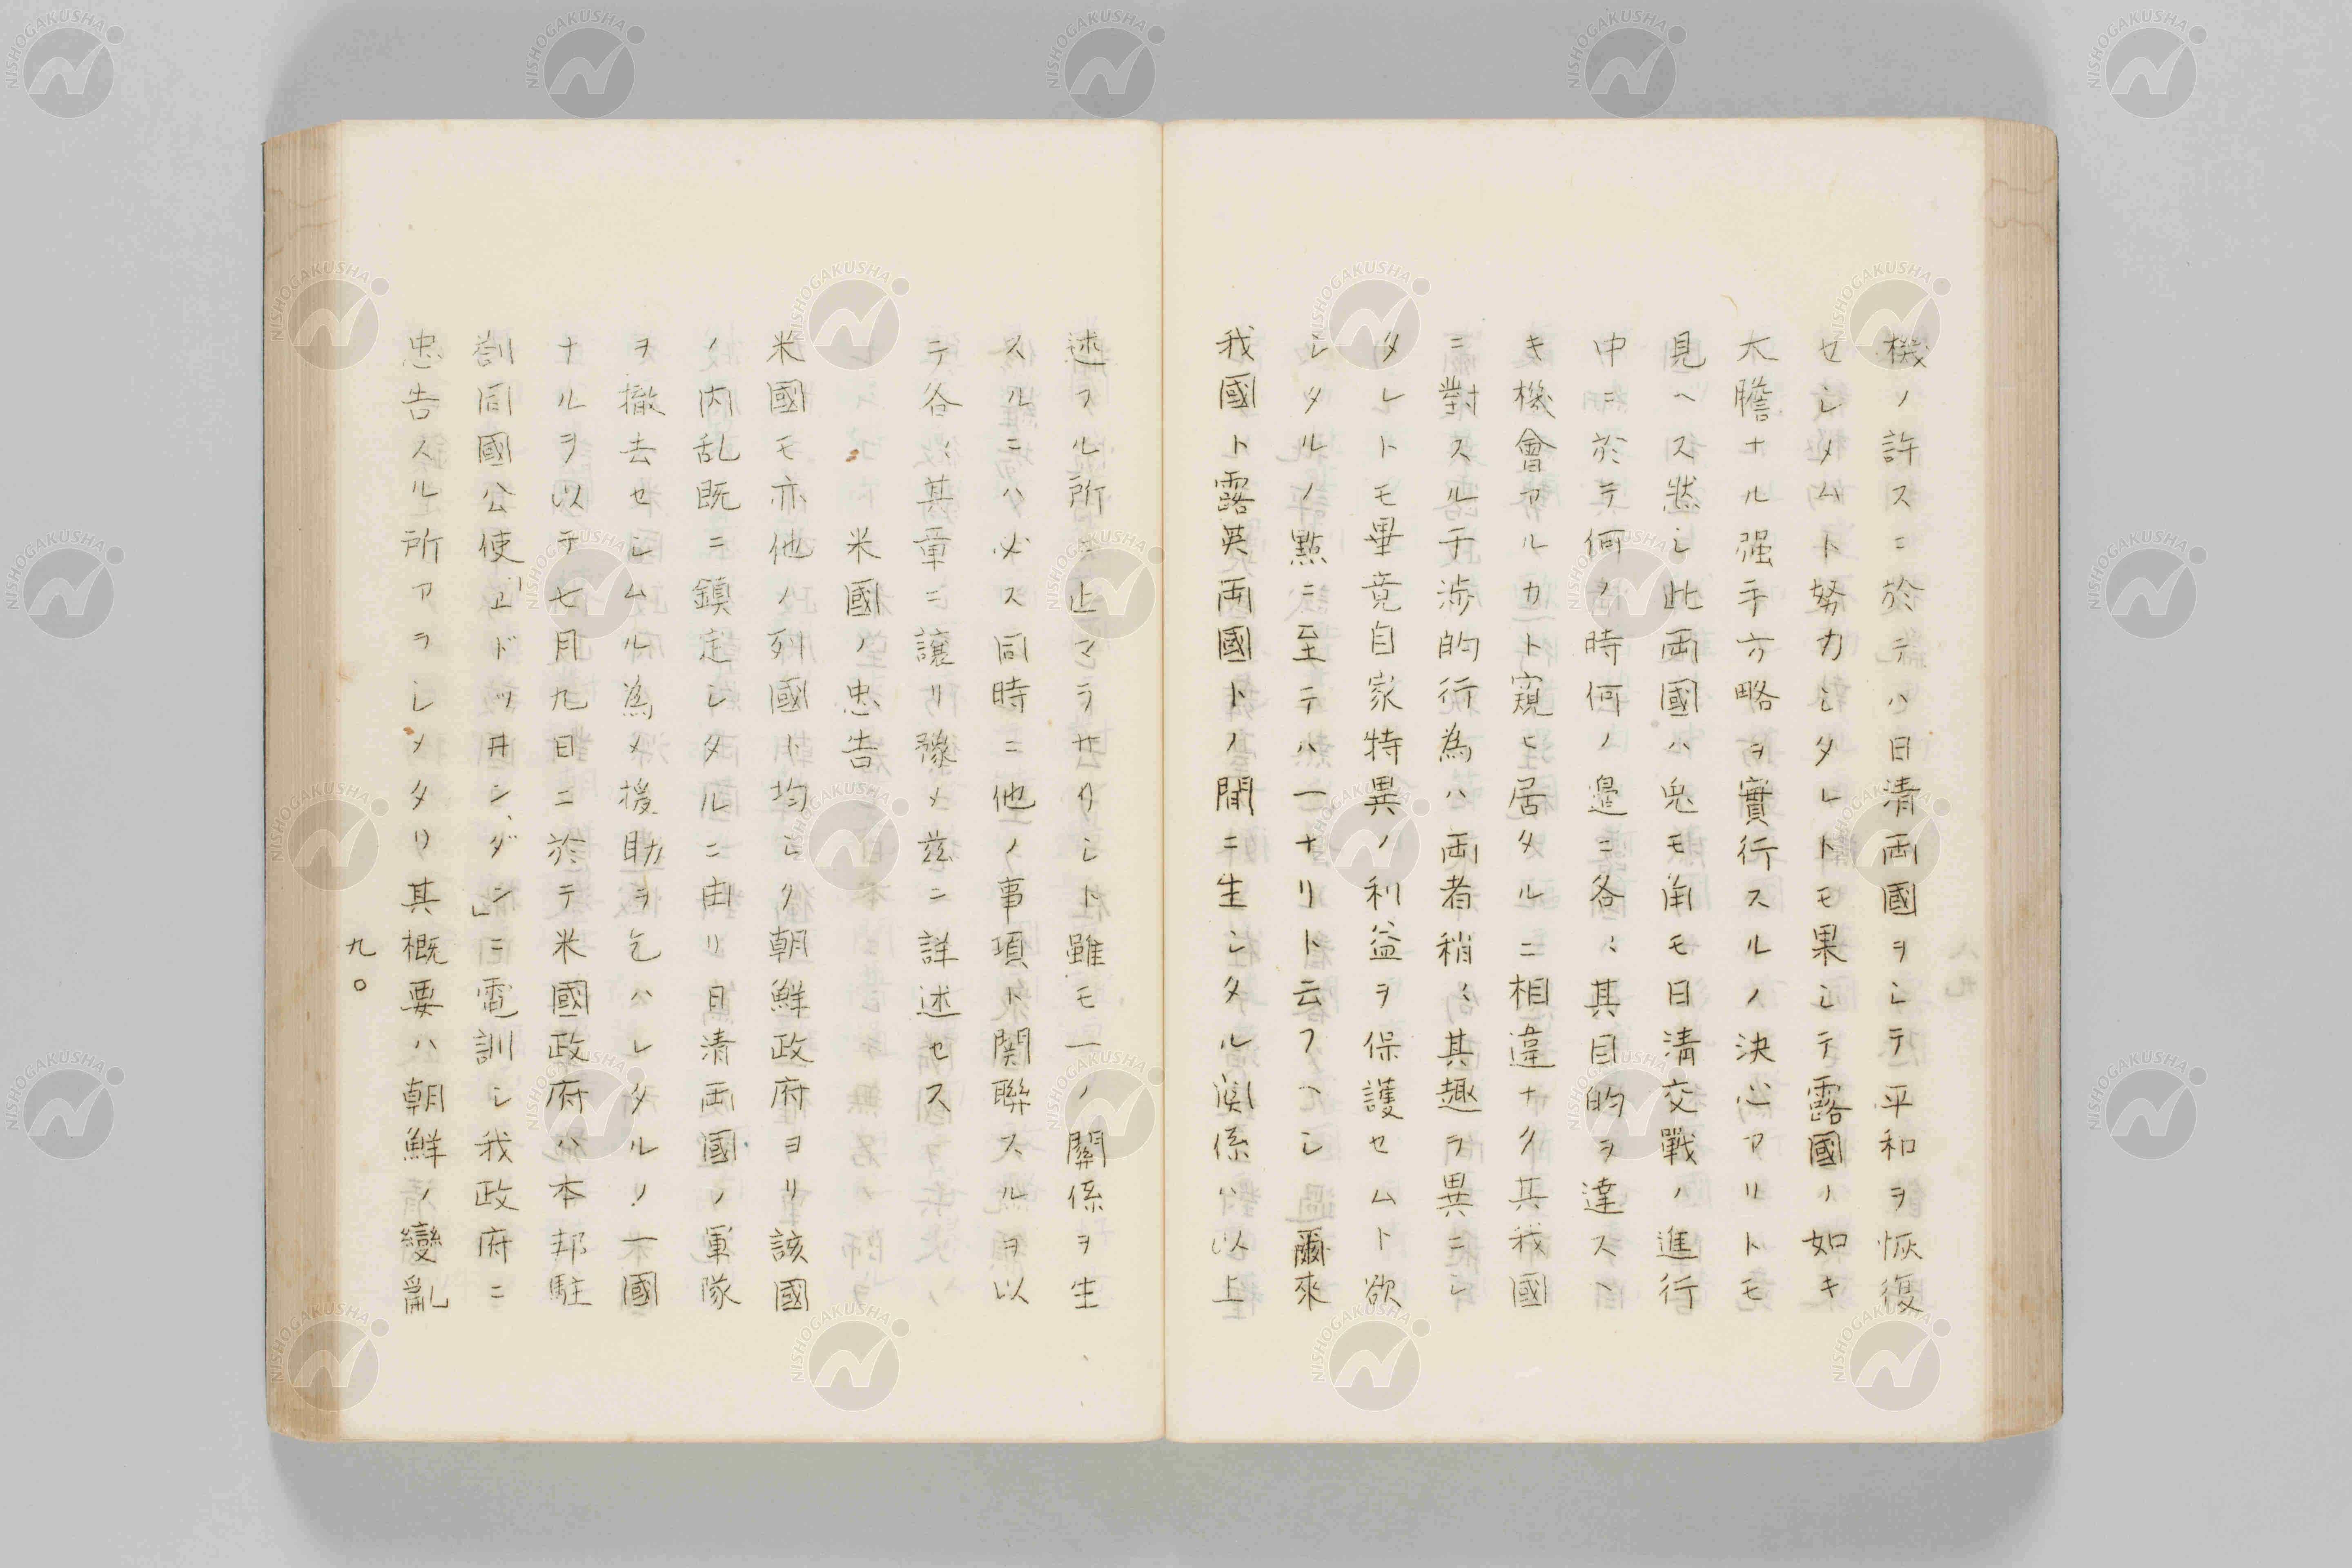 機ノ許スニ於テハ日清両國ヲシテ平和ヲ恢復
セシメムト努力シタレトモ果シテ露國ノ如キ
大膽ナル强手方略ヲ實行スルノ決心アリトモ
見ヘス然シ此両國ハ兎モ角モ日清交戰ノ進行
中ニ於テ何ノ時何ノ邉ニ各〻其目的ヲ達スヘ
キ機會アルカト窺ヒ居タルニ相違ナク其我國
ニ對スル干渉的行為ハ両者稍〻其趣ヲ異ニシ
タレトモ畢竟自家特異ノ利益ヲ保護セムト欲
シタルノ點ニ至テハ一ナリト云フヘシ爾來
我國ト露英両國トノ間ニ生シタル関係ハ以上
述フル所ニ止マラサリシト雖モ一ノ關係ヲ生
スルニハ必ス同時ニ他ノ事項ト関聯スルヲ以
テ各〻其章ニ譲リ豫メ茲ニ詳述セス
米國ノ忠告
米國モ亦他ノ列國ト均シク朝鮮政府ヨリ該國
ノ内乱既ニ鎮定シタルニ由リ日清両國ノ軍隊
ヲ撤去セシムル為メ援助ヲ乞ハレタルノ一國
ナルヲ以テ七月九日ニ於テ米國政府ハ本邦駐
劄同國公使「エドッ井ン、ダン」ニ電訓シ我政府ニ
忠告スル所アラシメタリ其概要ハ朝鮮ノ變亂
九〇
NISHOGAKUSHA